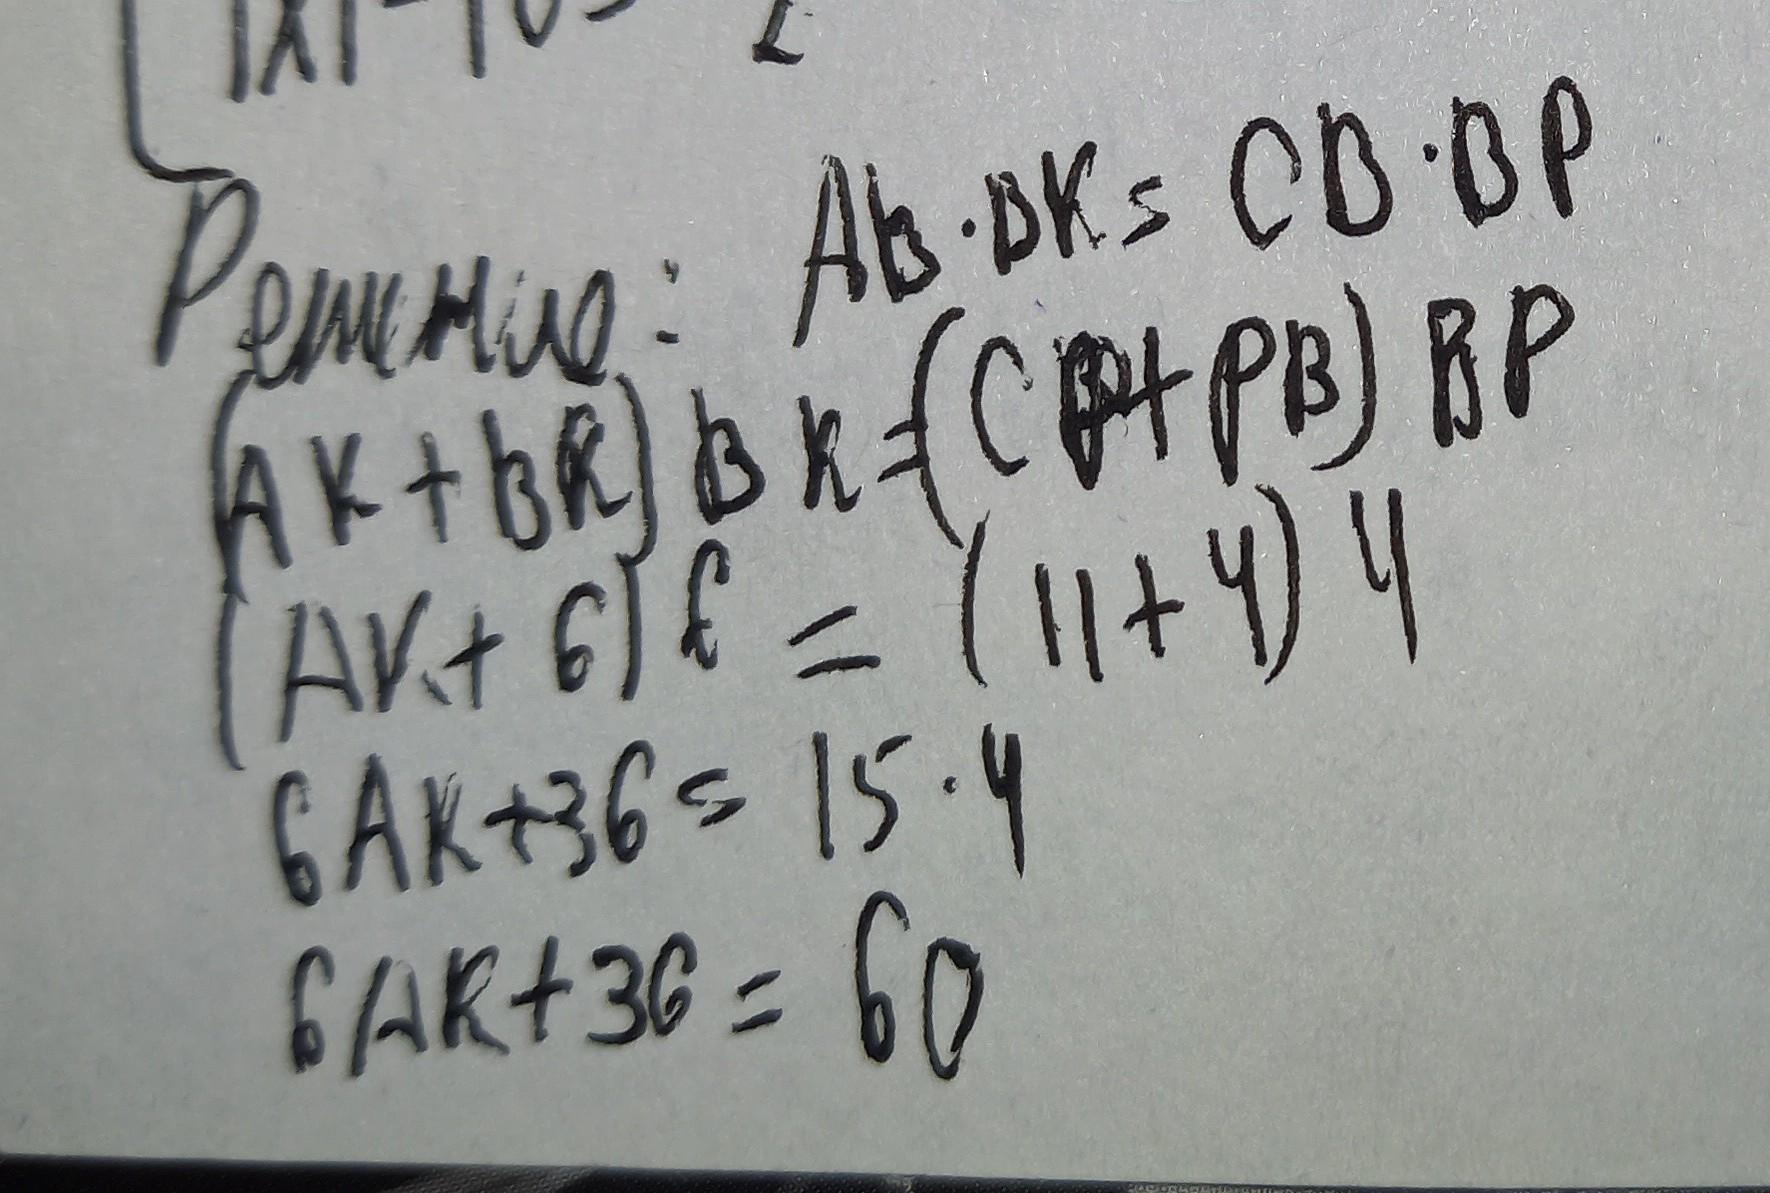 |x| - 10 = 2
AB · BK = CB · BP
Решение:
(AK + BK) BK = (CP + PB) BP
(AK + 6) 6 = (11 + 4) 4
6AK + 36 = 15 · 4
6AK + 36 = 60